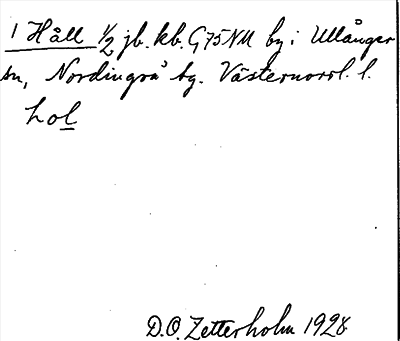 1 Håll ½ jb. kb. G75NM by i Ullånger
sn, Nordingrå tg. Västernorrl. l.
hol
D.O. Zetterholm 1928